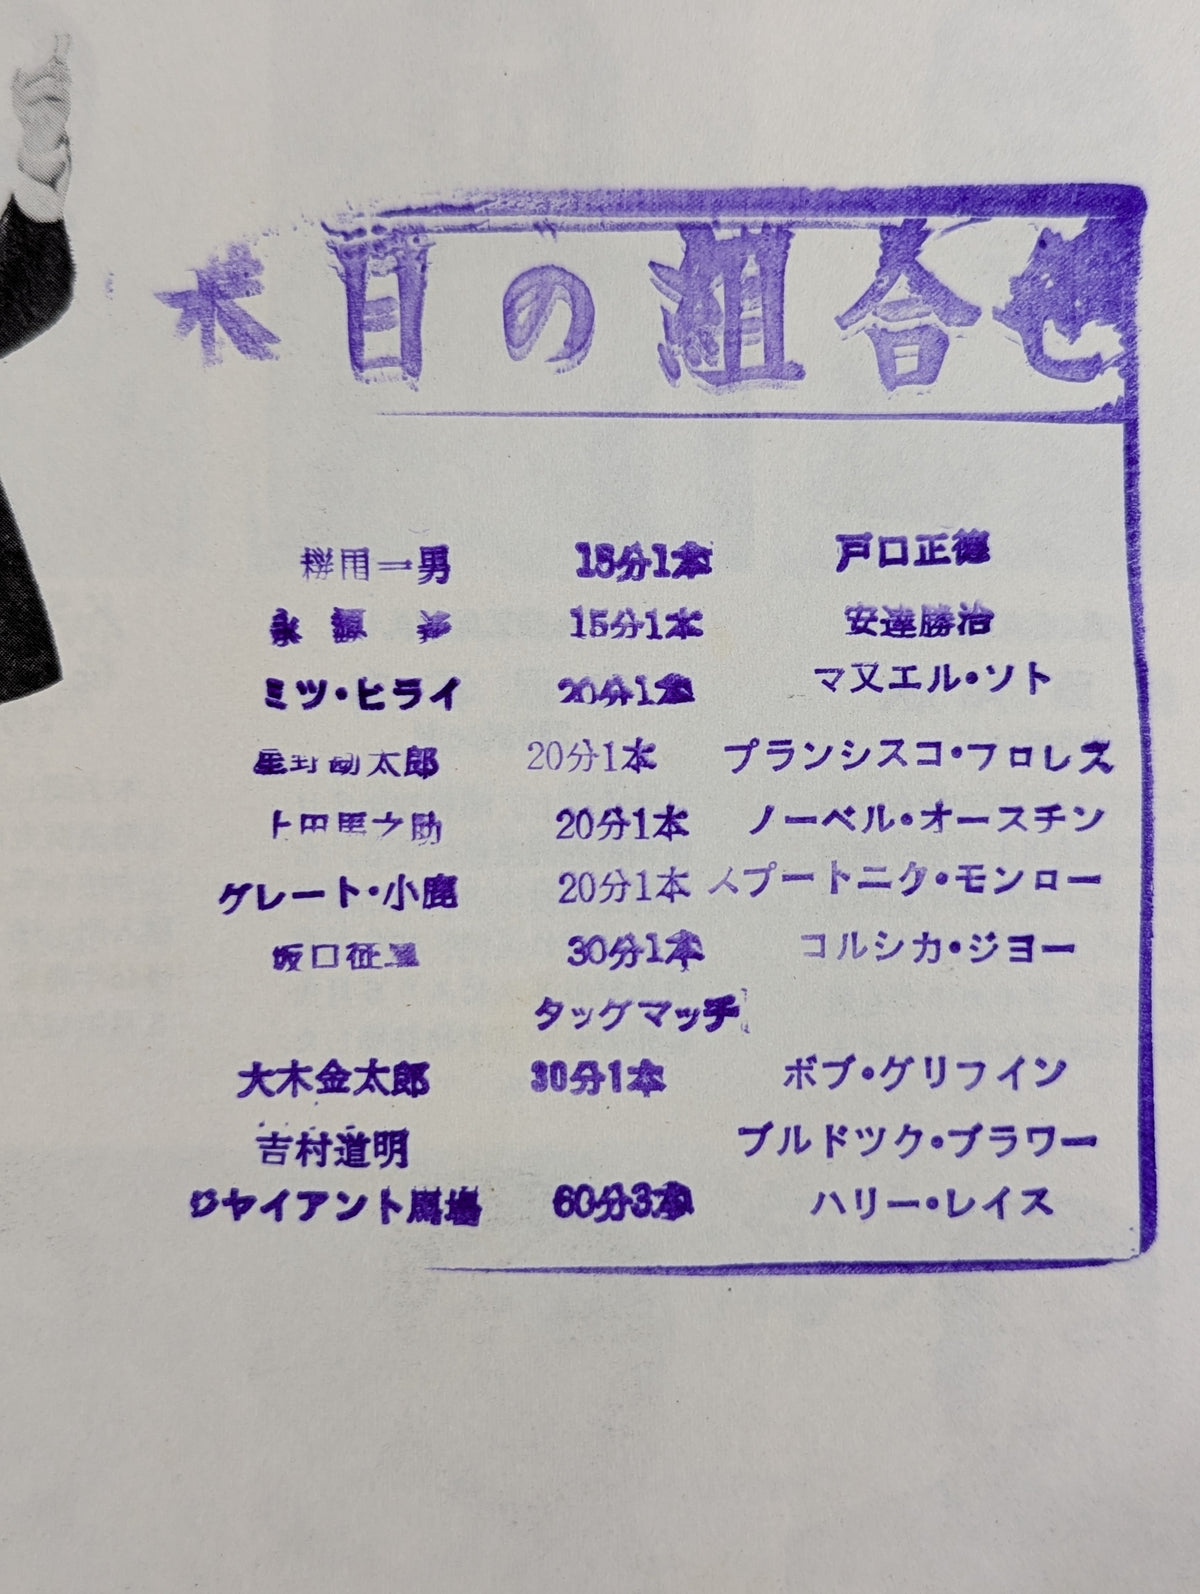 本日の組合せ
桜田一男 15分1本 戸口正徳
永源遙 15分1本 安達勝治
ミツ・ヒライ 20分1本 マヌエル・ソト
星野勘太郎 20分1本 フランシスコ・フロレス
上田馬之助 20分1本 ノーベル・オースチン
グレート・小鹿 20分1本 スプートニク・モンロー
坂口征二 30分1本 コルシカ・ジヨー
タッグマッチ
大木金太郎 30分1本 ボブ・グリフイン
吉村道明 ブルドツク・ブラワー
ジヤイアント馬場 60分3本 ハリー・レイス